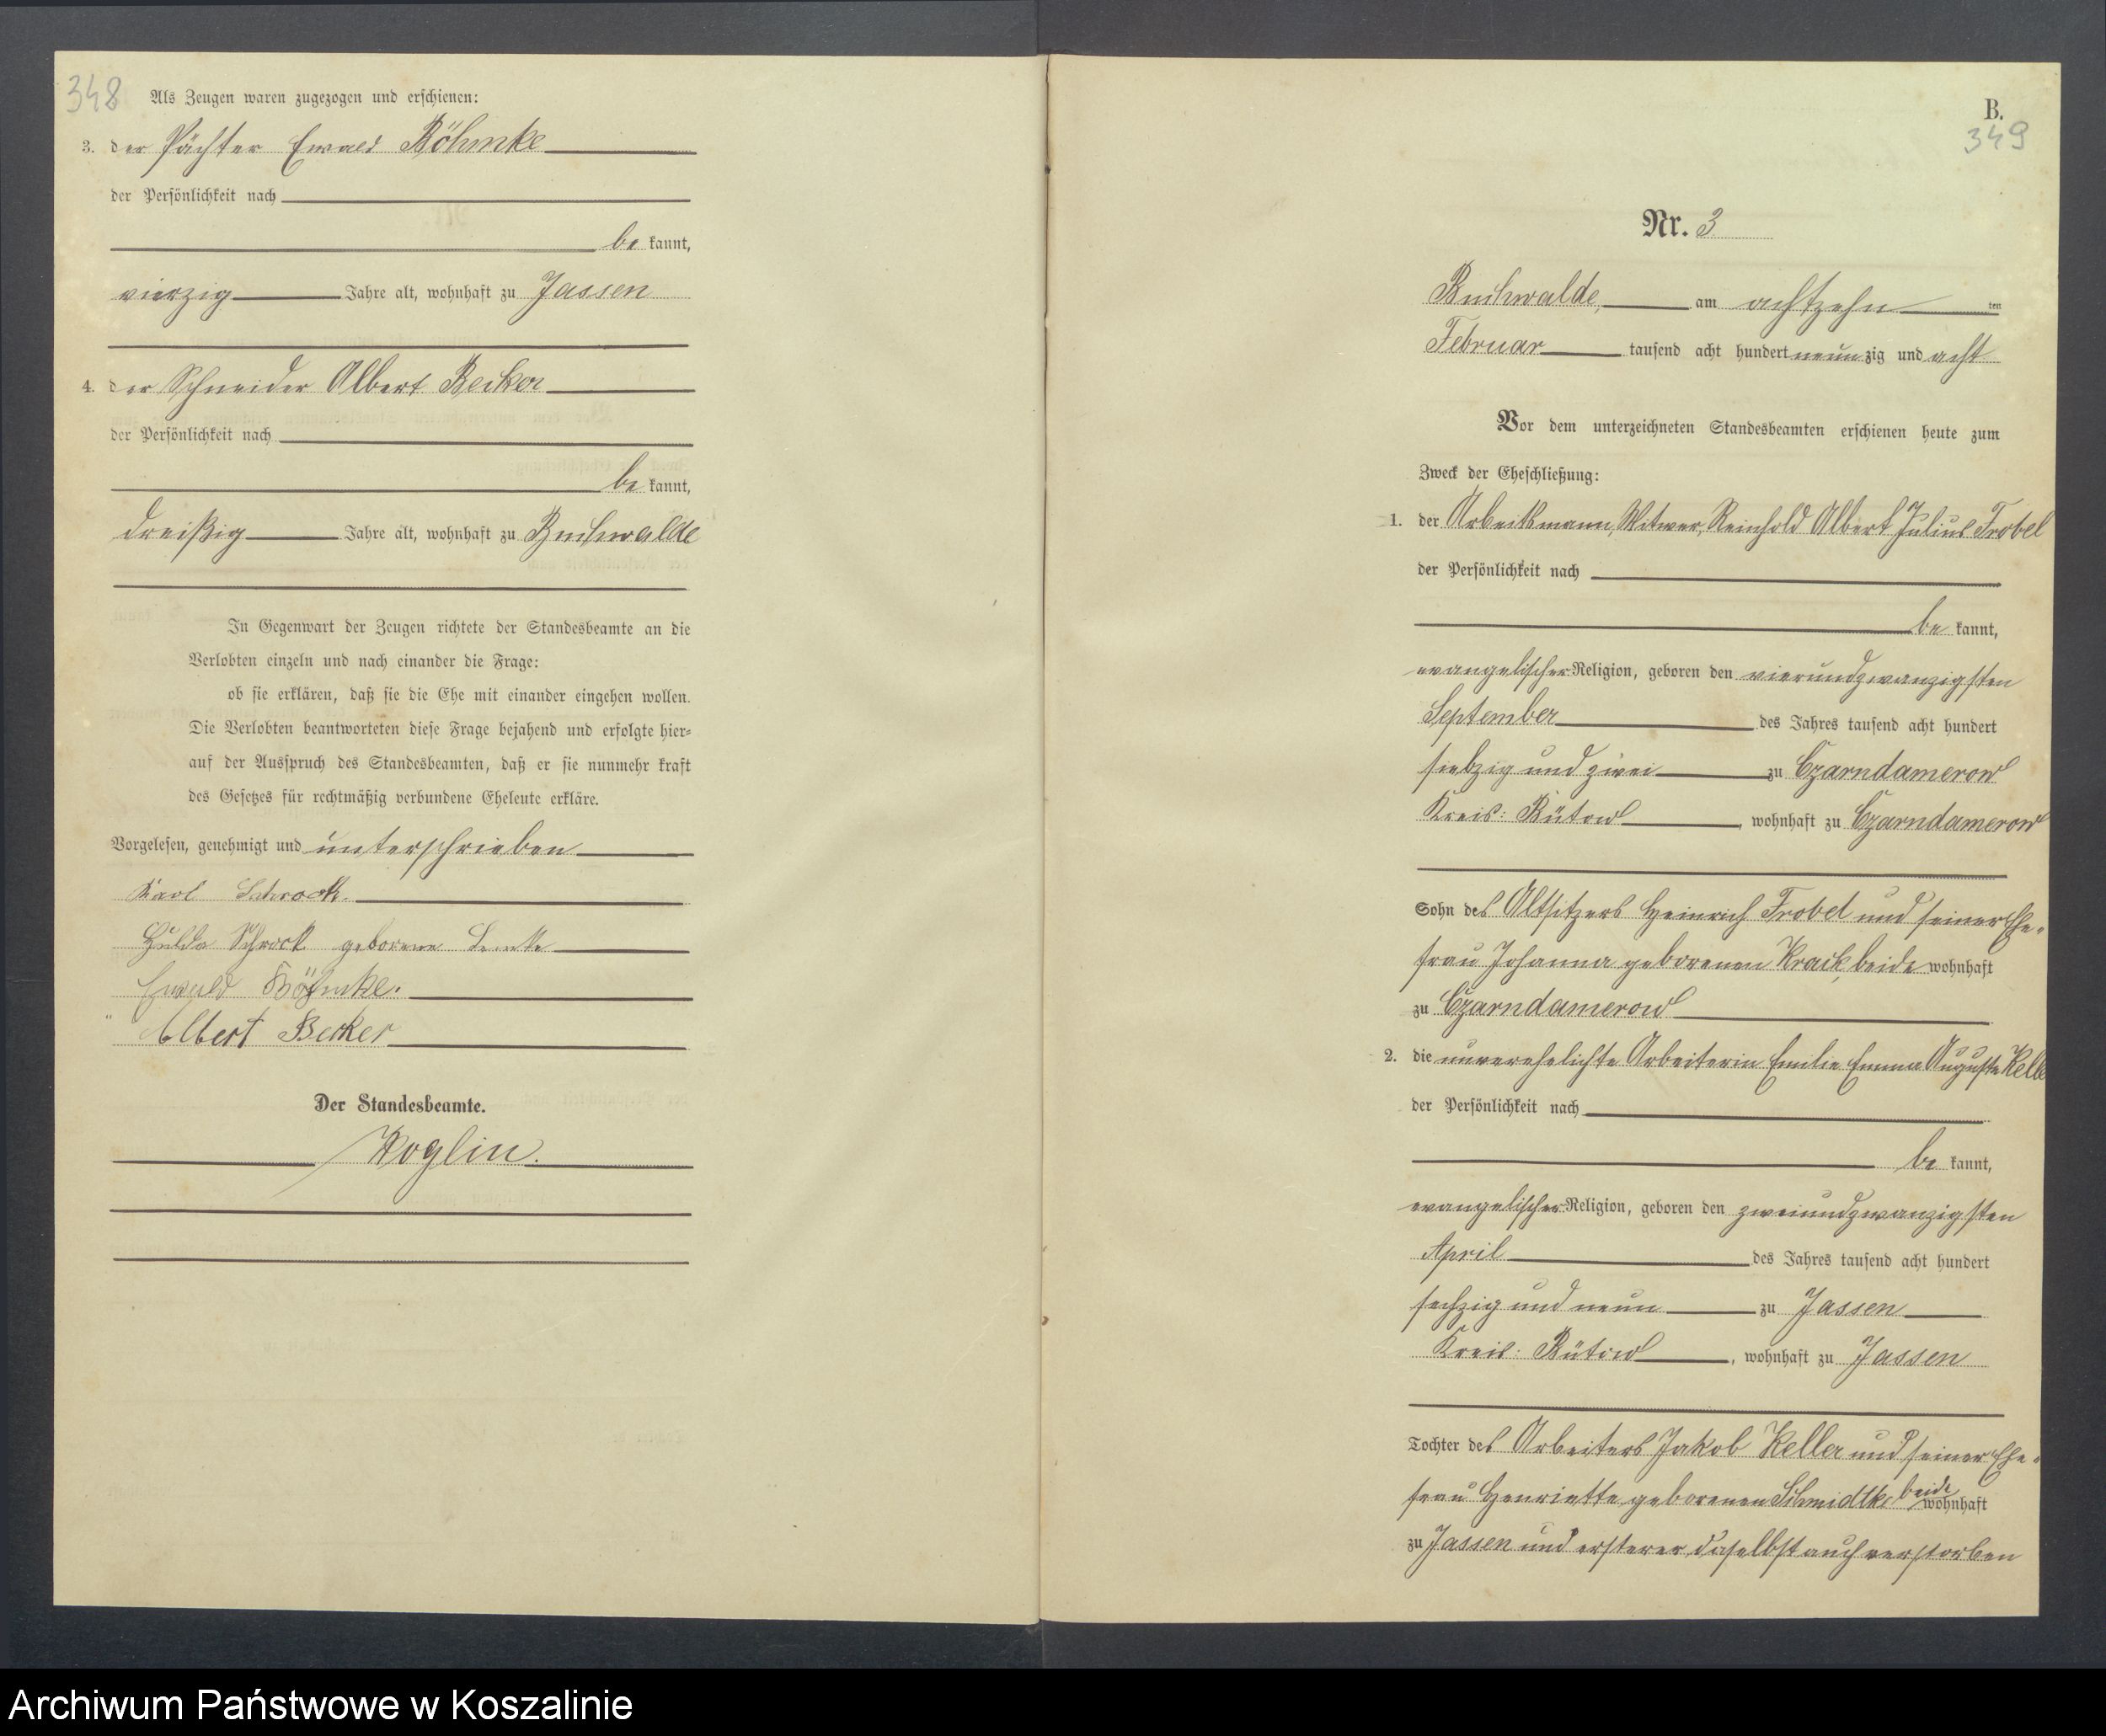 348
Als Zeugen waren zugezogen und erschienen:
3. der Pächter Ewald Böhmke
der Persönlichkeit nach
be kannt,
vierzig Jahre alt, wohnhaft zu Jassen
4. der Schneider Albert Becker
der Persönlichkeit nach
be kannt,
dreißig Jahre alt, wohnhaft zu Buchwalde
In Gegenwart der Zeugen richtete der Standesbeamte an die
Verlobten einzeln und nach einander die Frage:
ob sie erklären, daß sie die Ehe mit einander eingehen wollen.
Die Verlobten beantworteten diese Frage bejahend und erfolgte hier-
auf der Ausspruch des Standesbeamten, daß er sie nunmehr kraft
des Gesetzes für rechtmäßig verbundene Eheleute erkläre.
Vorgelesen, genehmigt und unterschrieben
Karl Schrock.
Hulda Schrock geborene
Ewald Böhmke.
Albert Becker
Der Standesbeamte.
Koglin.
B.
349
Nr. 3
Buchwalde, am achtzehn ten
Februar tausend acht hundert neun zig und acht
Vor dem unterzeichneten Standesbeamten erschienen heute zum
Zweck der Eheschließung:
1. der Arbeitsmann, Witwer, Reinhold Albert Julius Trobel
der Persönlichkeit nach
be kannt,
evangelischer Religion, geboren den vierundzwanzigsten
September des Jahres tausend acht hundert
siebzig und zwei zu Czarndamerow
Kreis: Bütow, wohnhaft zu Czarndamerow
Sohn des Altsitzers Heinrich Trobel und seiner Ehe-
frau Johanna geborenen Krack, beide wohnhaft
zu Czarndamerow
2. die unverehelichte Arbeiterin Emilie Emma Auguste Kelle
der Persönlichkeit nach
be kannt,
evangelischer Religion, geboren den zweiundzwanzigsten
April des Jahres tausend acht hundert
sechzig und neun zu Jassen
Kreis: Bütow, wohnhaft zu Jassen
Tochter des Arbeiters Jakob Keller und seiner Ehe-
frau Henriette geborenen Schmidtke, beide wohnhaft
zu Jassen und ersterer daselbst auch verstorben
Archiwum Państwowe w Koszalinie